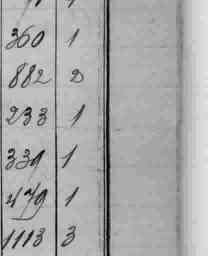 360 1
882 2
233 1
339 1
479 1
1113 3